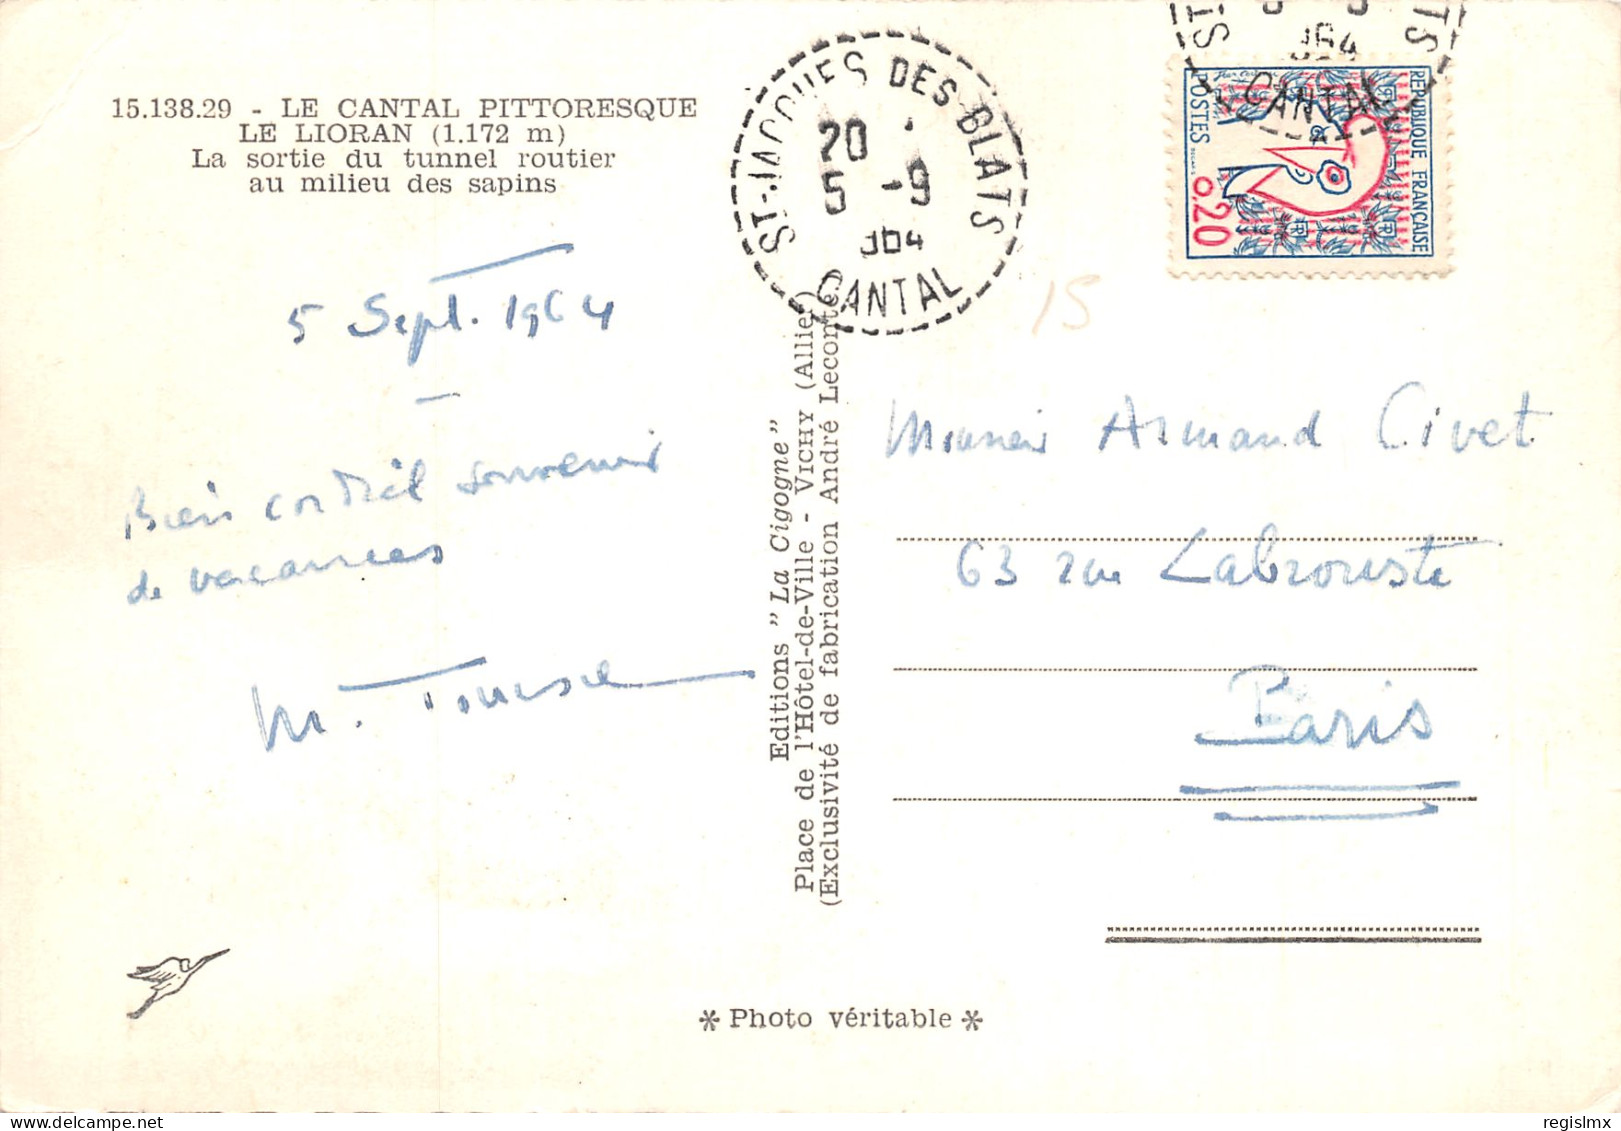 15.138.29 - LE CANTAL PITTORESQUE
LE LIORAN (1.172 m)
La sortie du tunnel routier
au milieu des sapins
5 Sept. 1964
Bien cordial souvenir
de vacances
M.
Editions "La Cigogne"
Place de l'Hôtel-de-Ville - VICHY (Allier)
(Exclusivité de fabrication André Leconte.
ST-JACQUES DES BLATS
20
5 -9
964
CANTAL
TS
ST
964
CANTAL
REPUBLIQUE FRANÇAISE
POSTES
0,20
15
Monsieur Armand Civet
63 rue Labrouste
Paris
* Photo véritable *
regislmx